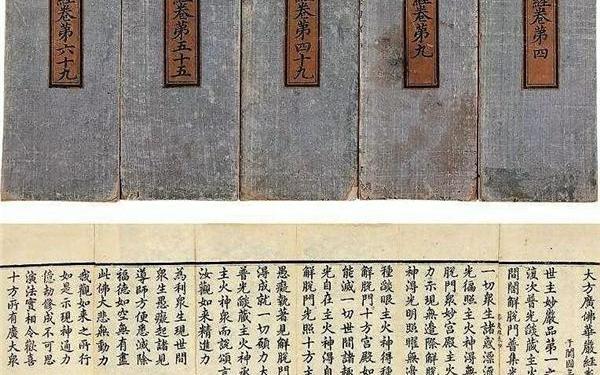 經卷第四
經卷第九
經卷第四十九
經卷第五十五
經卷第六十九
大方廣佛華嚴經卷
于闐國三
世主妙嚴品第一之
復次普光燄藏主火
間闇解脫門普集光
一切衆生諸惑漂流
光徧照主火神得無
脫門衆妙宮殿主火
力示現無邊際解脫
神得光明照曜無邊
種燄眼主火神得種
解脫門十方宮殿如
能滅一切世間諸趣
光自在主火神得自
解脫門光照十方主
愚癡執著見解脫門
得成就一切願力大
普光燄藏主火神承
主火神衆而說頌言
汝觀如來精進力
為利衆生現世間
衆生愚癡起諸見
導師方便悉滅除
福德如空無有盡
此佛大悲無動力
我觀如來之所行
如是示現神通力
億劫修成不可思
演法實相令歡喜
十方所有廣大衆